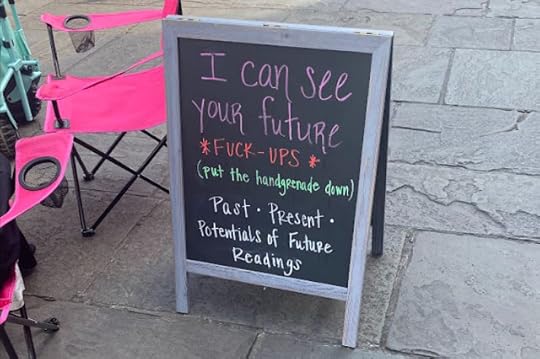 I can see
your future
*FUCK-UPS*
(put the handgrenade down)
Past · Present ·
Potentials of Future
Readings